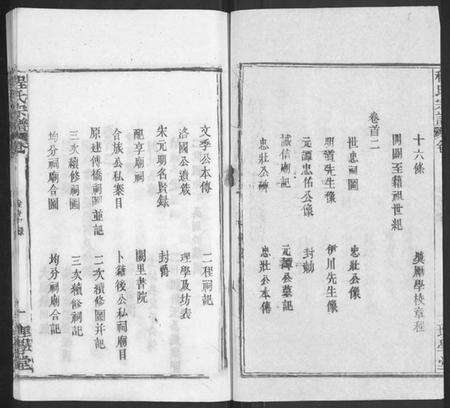 十六條
獎勵學校章程
開闢至藉祖世紀
卷首二
世忠祠圖
忠壯公像
明道先生像
伊川先生像
元譚忠佑公像
封勅
誠信廟記
元譚公墓記
忠壯公碑
忠壯公本傳
文季公本傳
二程祠記
洛國公遺蔵
理學及坊表
朱元廟名賢錄
封爵
配享廟祠
闕里書院
合族公私案目
卜籍後公私祠廟目
原建傳橋祠圖並記
二次續修圖并記
三次續修祠圖
三次續修祠記
均分祠廟合圖
均分祠廟合記
程氏宗譜
理學堂